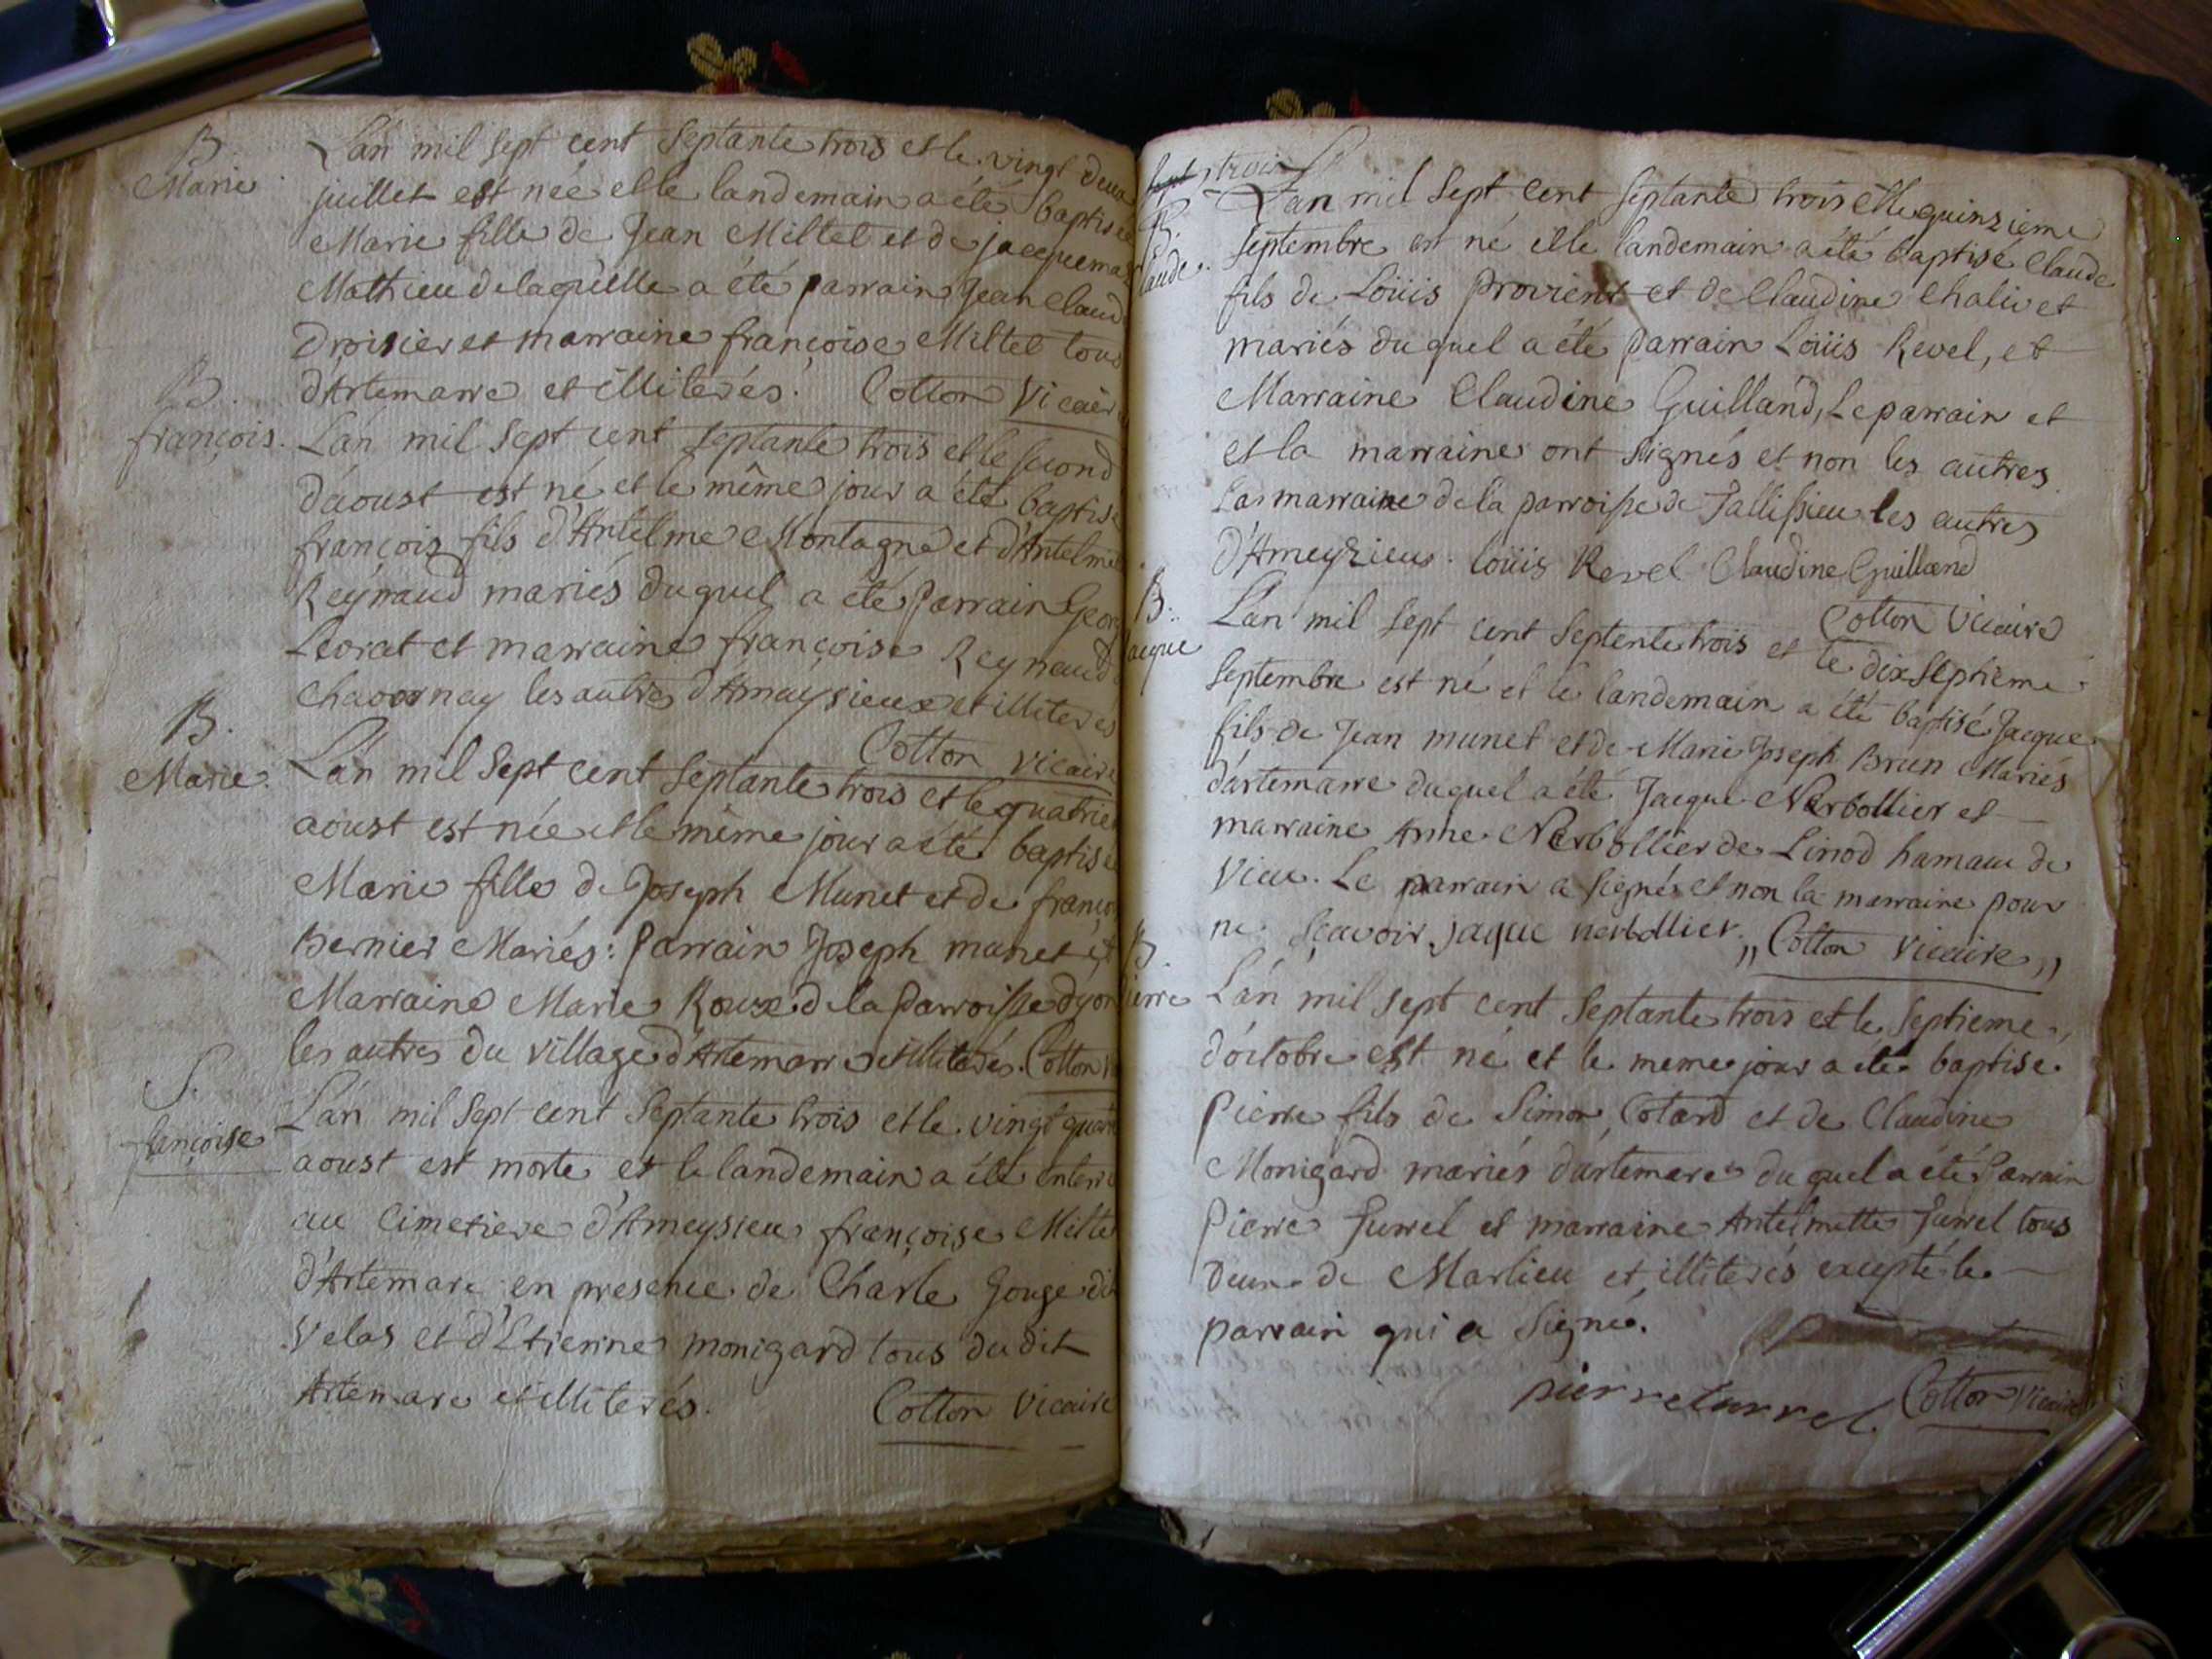 B
Marie
L'an mil sept cent septante trois et le vingt deux
juillet est née et le landemain a été baptisée
Marie fille de Jean Miltet et de jacquema
Mathieu de laquelle a été parrain Jean Claud
Droisier et marraine françoise Miltet tous
d'Artemarre et illiterés. Cotton Vicaire
B.
françois.
L'an mil sept cent septante trois et le second
d'aoust est né et le même jour a été baptisé
françois fils d'Antelme Montagne et d'Antelme
Reynaud mariés duquel a été parrain Geor
Leorat et marraine françoise Reynaud
Chavornay les autres d'Amaysieux et illiterés
Cotton vicaire
B.
Marie.
L'an mil sept cent septante trois et le quatrie
aoust est née et le même jour a été baptisée
Marie fille de Joseph Munet et de franço
Bernier Mariés: parrain Joseph munet et
Marraine Marie Roux de la parroisse dyon
les autres du village d'Artemarre et illiterés. Cotton v
S.
françoise
L'an mil sept cent septante trois et le vingt quat
aoust est morte et le landemain a été enterré
au Cimetiere d'Ameysieu françoise Miltet
d'Artemare en presence de Charle Gouge dit
Velas et d'Etienne monigard tous du dit
Artemare et illiterés. Cotton Vicaire
sept, trois
B.
laude.
L'an mil sept cent septante trois et le quinzieme
septembre est né et le landemain a été baptisé Claude
fils de Loüis Provient et de Claudine Chalivet
mariés duquel a été parrain Loüis Revel, et
Marraine Claudine Guilland, Le parrain et
et la marraine ont signés et non les autres
La marraine de la parroisse de Tallissieu les autres
d'Ameyzieux. loüis Revel Claudine Guilland
Cotton Vicaire
B.
acque
L'an mil sept cent septente trois et le dix septieme
septembre est né et le landemain a été baptisé Jacque
fils de Jean munet et de Marie Joseph Brun Mariés
d'artemarre duquel a été Jacque Nerbollier et
marraine Anne Nerbollier de Linod hamau de
Vieu. Le parrain a signés et non la marraine pour
ne sçavoir. jaque nerbollier. „ Cotton Vicaire „
B.
ierre
L'an mil sept cent septante trois et le septieme
d'octobre est né et le meme jour a été baptisé
Pierre fils de Simon Cotard et de Claudine
Monigard mariés d'artemare duquel a été Parrain
Pierre Turrel et marraine Antelmette Turrel tous
deux de Marlieu et illiterés excepté le
parrain qui a signé.
pierre turrel. Cotton Vicaire